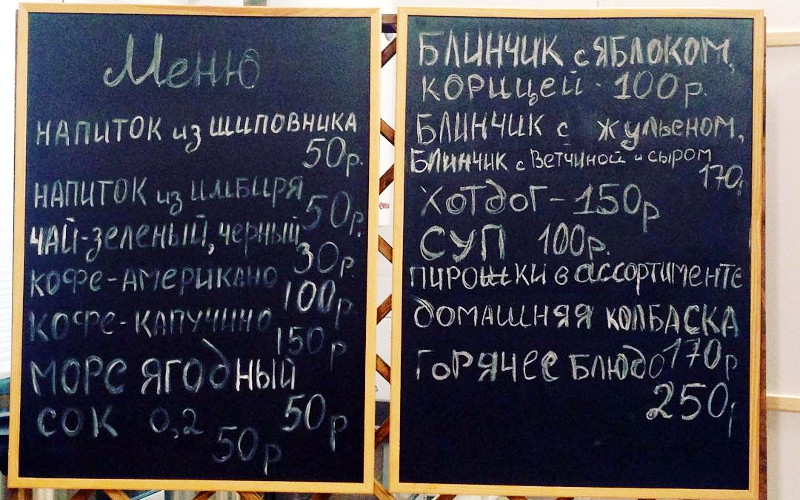 Меню
НАПИТОК из ШИПОВНИКА
50р.
НАПИТОК из ИМБИРЯ
50р.
ЧАЙ-ЗЕЛЕНЫЙ, ЧЕРНЫЙ
30р.
КОФЕ-АМЕРИКАНО
100р
КОФЕ-КАПУЧИНО
150р
МОРС ЯГОДНЫЙ
50р
СОК 0,2
50р
БЛИНЧИК с ЯБЛОКОМ,
КОРИЦЕЙ - 100р.
БЛИНЧИК с жульеном,
БЛИНЧИК с ВЕТЧИНОЙ и СЫРОМ
170.
ХОТДОГ - 150р
СУП 100р.
ПИРОШКИ в АССОРТИМЕНТЕ
ДОМАШНЯЯ КОЛБАСКА
170р
ГОРЯЧЕЕ БЛЮДО
250р